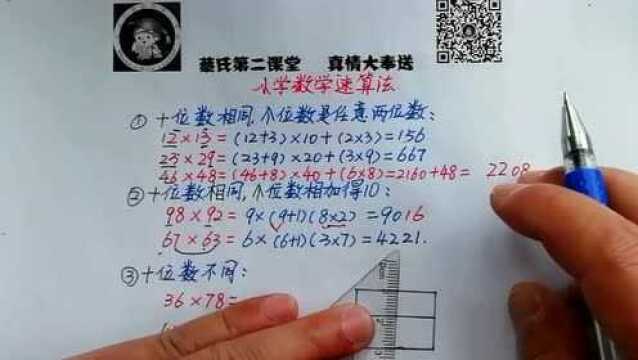 蔡氏第二课堂 真情大奉送
小学数学速算法
① 十位数相同,个位数是任意两位数:
12×13=(12+3)×10+(2×3)=156
23×29=(23+9)×20+(3×9)=667
46×48=(46+8)×40+(6×8)=2160+48= 2208
② 十位数相同,个位数相加得10:
98×92=9×(9+1)(8×2)=9016
67×63=6×(6+1)(3×7)=4221.
③ 十位数不同:
36×78=